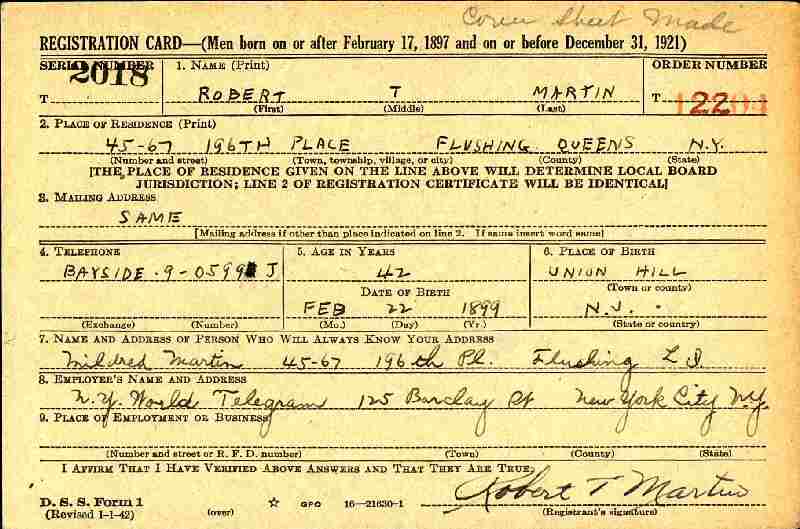 Cover Sheet Made
REGISTRATION CARD—(Men born on or after February 17, 1897 and on or before December 31, 1921)
SERIAL NUMBER 1. NAME (Print) ORDER NUMBER
2018
T ROBERT T MARTIN T 22
(First) (Middle) (Last)
2. PLACE OF RESIDENCE (Print)
45-67 196TH PLACE FLUSHING QUEENS N.Y.
(Number and street) (Town, township, village, or city) (County) (State)
[THE PLACE OF RESIDENCE GIVEN ON THE LINE ABOVE WILL DETERMINE LOCAL BOARD
JURISDICTION; LINE 2 OF REGISTRATION CERTIFICATE WILL BE IDENTICAL]
3. MAILING ADDRESS
SAME
[Mailing address if other than place indicated on line 2. If same insert word same]
4. TELEPHONE 5. AGE IN YEARS 6. PLACE OF BIRTH
BAYSIDE . 9-0599 J 42 UNION HILL
DATE OF BIRTH (Town or county)
FEB 22 1899 N.J.
(Exchange) (Number) (Mo.) (Day) (Yr.) (State or country)
7. NAME AND ADDRESS OF PERSON WHO WILL ALWAYS KNOW YOUR ADDRESS
Mildred Martin 45-67 196th Pl. Flushing L I.
8. EMPLOYER'S NAME AND ADDRESS
N.Y. World Telegram 125 Barclay St New York City N.Y.
9. PLACE OF EMPLOYMENT OR BUSINESS
(Number and street or R. F. D. number) (Town) (County) (State)
I AFFIRM THAT I HAVE VERIFIED ABOVE ANSWERS AND THAT THEY ARE TRUE.
Robert T Martin
D. S. S. Form 1
(Revised 1-1-42) (over) ☆ GPO 16—21630-1 (Registrant's signature)